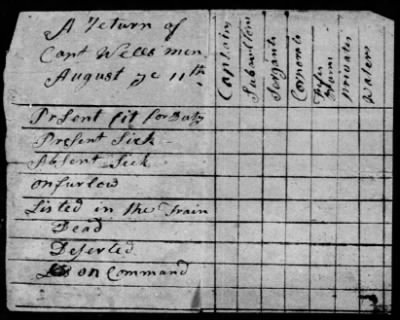 A Return of
Capt Wells men
August ye 11th
Captain
Subaultons
Sergants
Corporals
fifer
Drum
privates
Waters
Prsent fit for Duty
Present Sick
Absent Sick
on furlow
Listed in the Train
Dead
Deserted
on Command